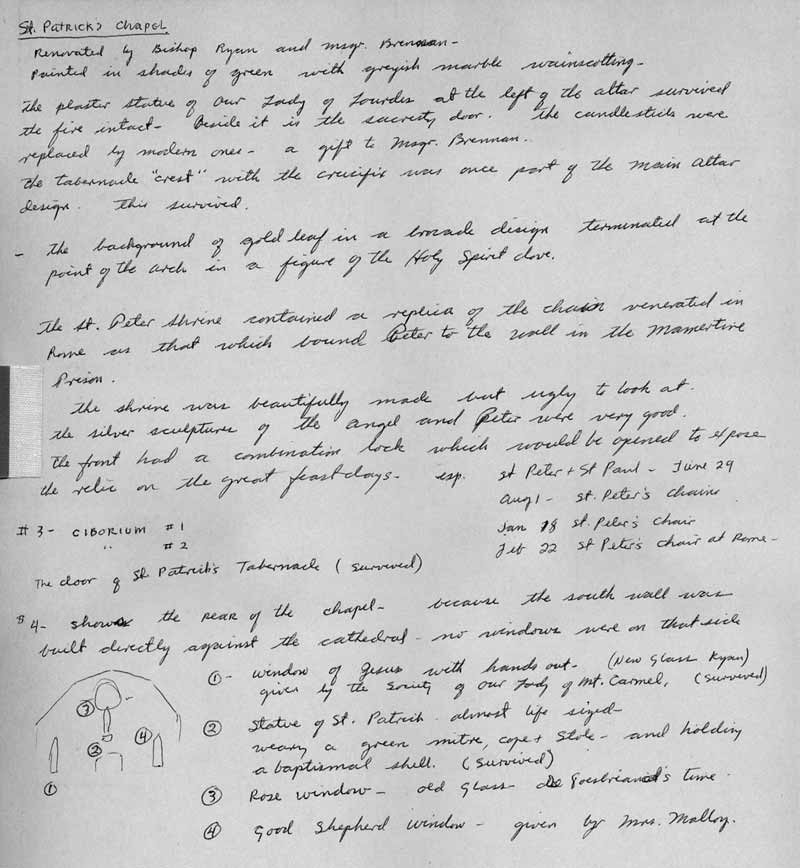 St. Patrick's Chapel
Renovated by Bishop Ryan and Msgr. Brennan-
Painted in shades of green with greyish marble wainscotting-
The plaster statue of Our Lady of Lourdes at the left of the altar survived
the fire intact- Beside it is the sacresty door. The candlesticks were
replaced by modern ones- a gift to Msgr. Brennan.
The tabernacle "crest" with the crucifix was once part of the Main Altar
design. This survived.
- The background of gold leaf in a brocade design terminated at the
point of the arch in a figure of the Holy Spirit dove.
The St. Peter shrine contained a replica of the chain venerated in
Rome as that which bound Peter to the wall in the Mamertine
Prison.
The shrine was beautifully made but ugly to look at.
The silver sculpture of the angel and Peter were very good.
The front had a combination lock which would be opened to expose
the relic on the great feastdays- esp. St Peter + St Paul - June 29
Aug 1 - St. Peter's Chains
Jan 18 St. Peter's Chair
Feb 22 St Peter's Chair at Rome-
#3- CIBORIUM #1
" #2
The door of St. Patrick's Tabernacle (survived)
#4- shows the rear of the chapel- because the south wall was
built directly against the cathedral - no windows were on that side
① - Window of Jesus with hands out- (New Glass Ryan)
given by the Society of Our Lady of Mt. Carmel. (Survived)
② Statue of St. Patrick. almost life sized-
wearing a green mitre, cope + stole- and holding
a baptismal shell. (Survived)
③ Rose window - old Glass - De Goesbriand's time.
④ Good Shepherd window - given by Mrs. Malloy.
③
②
④
①